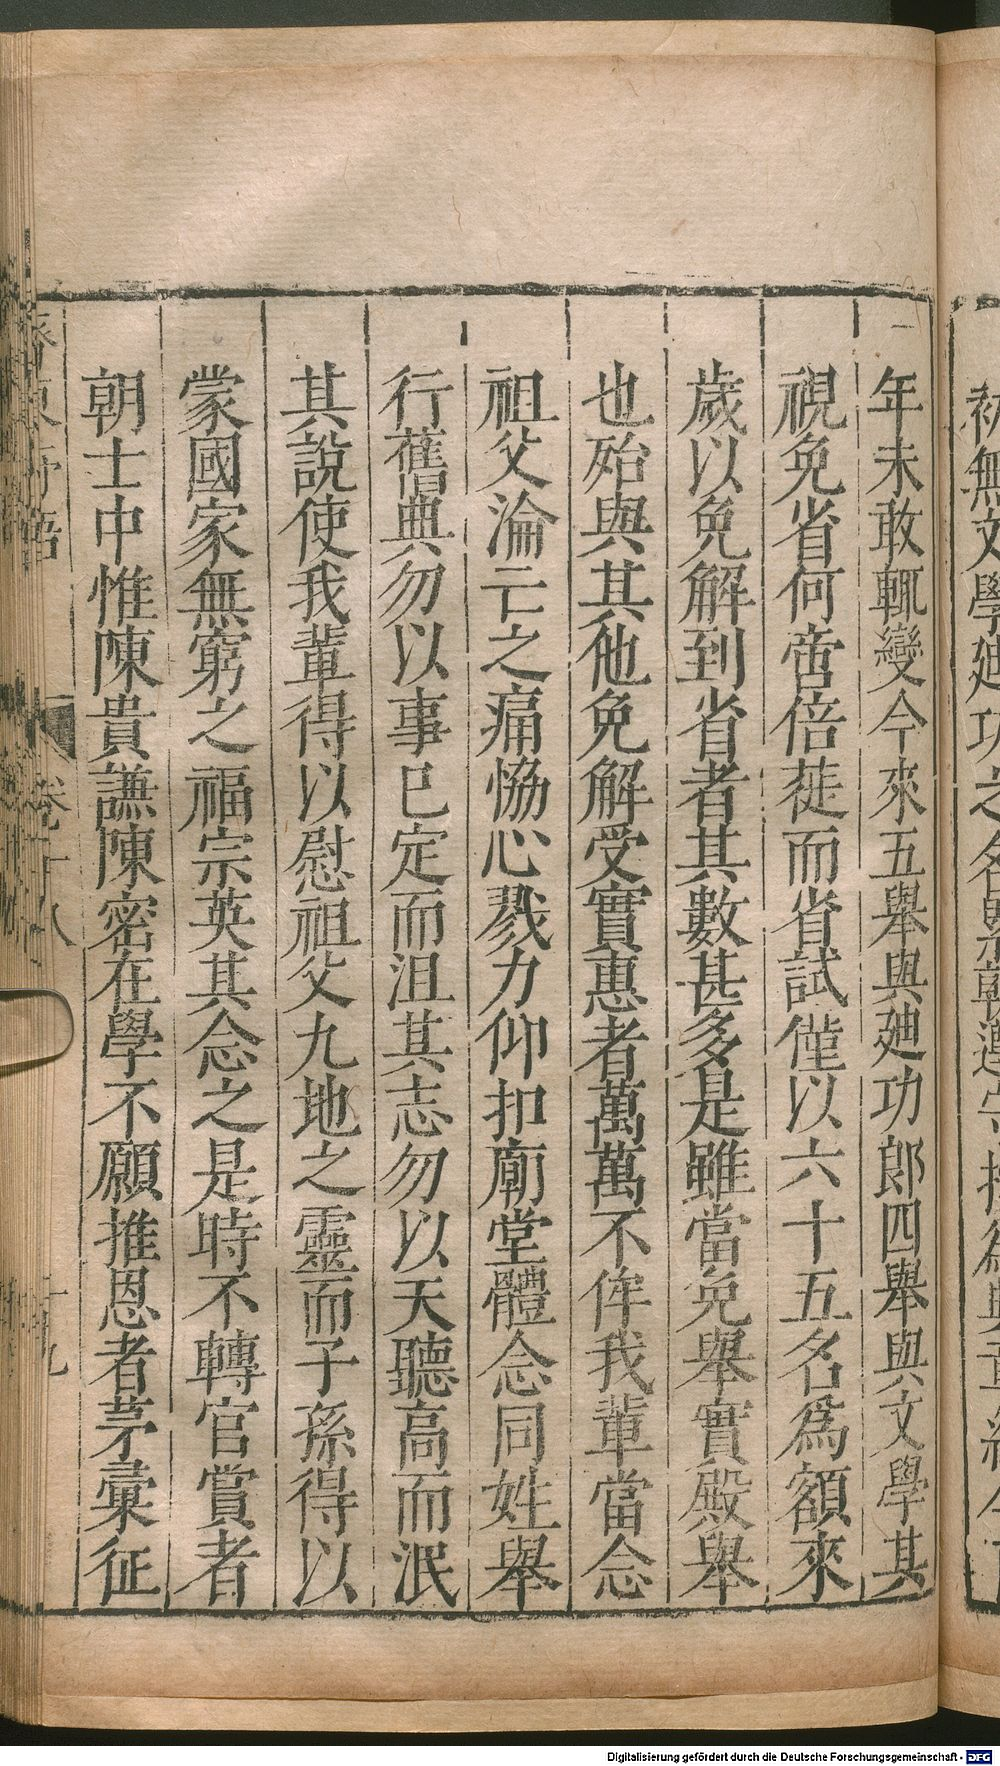 年未敢輒變今來五舉與廸功郎四舉與文學其
視免省何啻倍蓰而省試僅以六十五名爲額來
歲以免解到省者其數甚多是雖當免舉實殿舉
也殆與其他免解受實惠者萬萬不侔我輩當念
祖父淪亡之痛恊心戮力仰扣廟堂體念同姓舉
行舊典勿以事已定而沮其志勿以天聽高而泯
其說使我輩得以慰祖父九地之靈而子孫得以
蒙國家無窮之福宗英其念之是時不轉官賞者
朝士中惟陳貴謙陳宻在學不願推恩者茅彚征
卷十八
十九
初無文學廸功之名
Digitalisierung gefördert durch die Deutsche Forschungsgemeinschaft - DFG